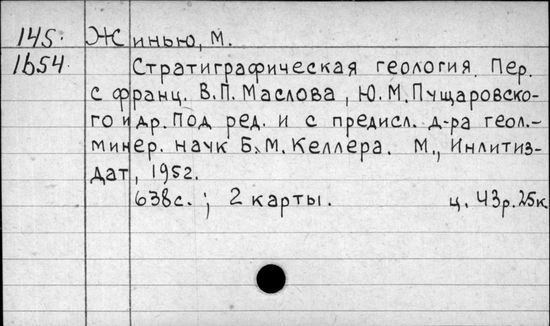 145. Жинью, М.
1654 Стратиграфическая геология. Пер.
с франц. В.П. Маслова, Ю.М. Пущаровско-
го и др. Под ред. и с предисл. д-ра геол.-
минер. наук Б.М. Келлера. М., Инлитиз-
дат, 1952.
638с.; 2 карты. ц. 43р.25к